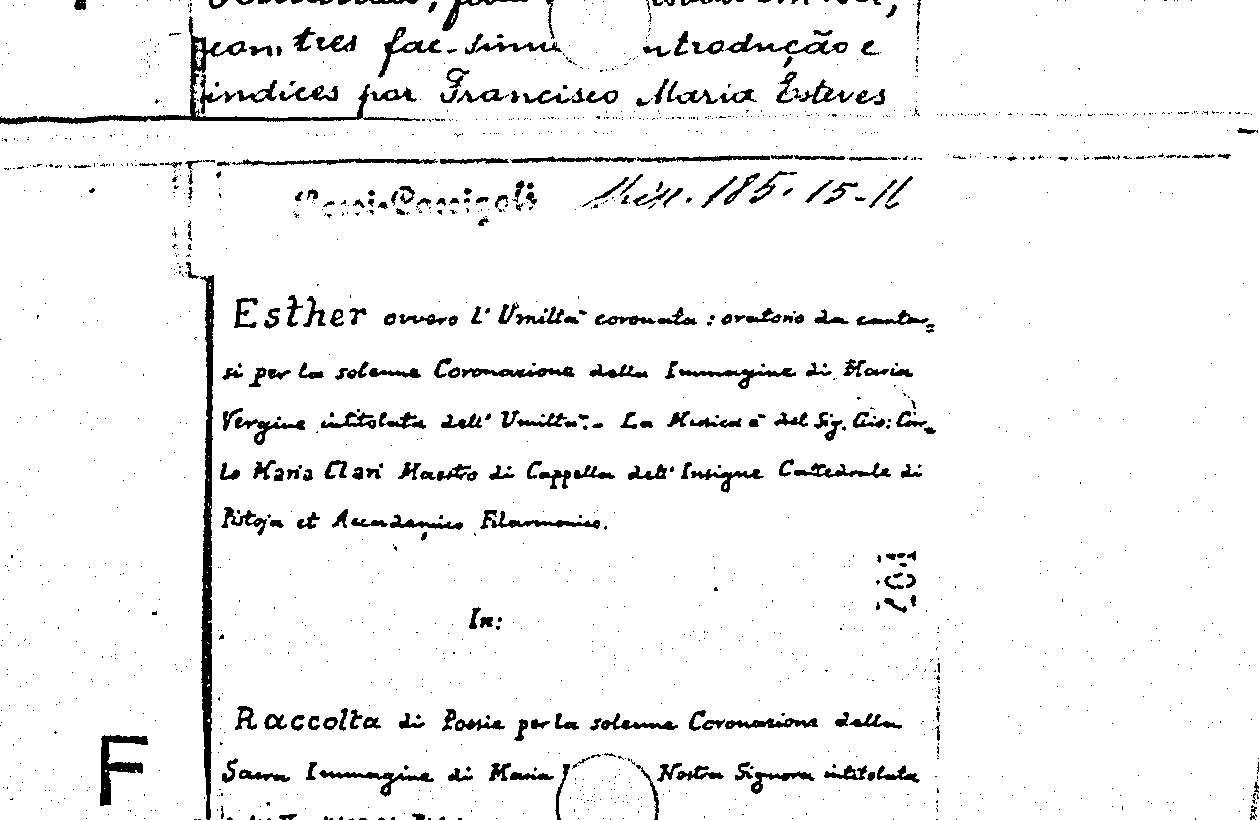 com tres fac-simi ntrodução e
indices por Francisco Maria Esteves
Rossi-Cassigoli Misc. 185. 15-16
Esther ovvero l'Umiltà coronata : oratorio da cantar=
si per la solenne Coronazione della Immagine di Maria
Vergine intitolata dell'Umiltà.- La Musica è del Sig. Gio: Car=
lo Maria Clari Maestro di Cappella dell'Insigne Cattedrale di
Pistoja et Accademico Filarmonico.
107
In:
Raccolta di Poesie per la solenne Coronazione della
Sacra Immagine di Maria V Nostra Signora intitolata
F